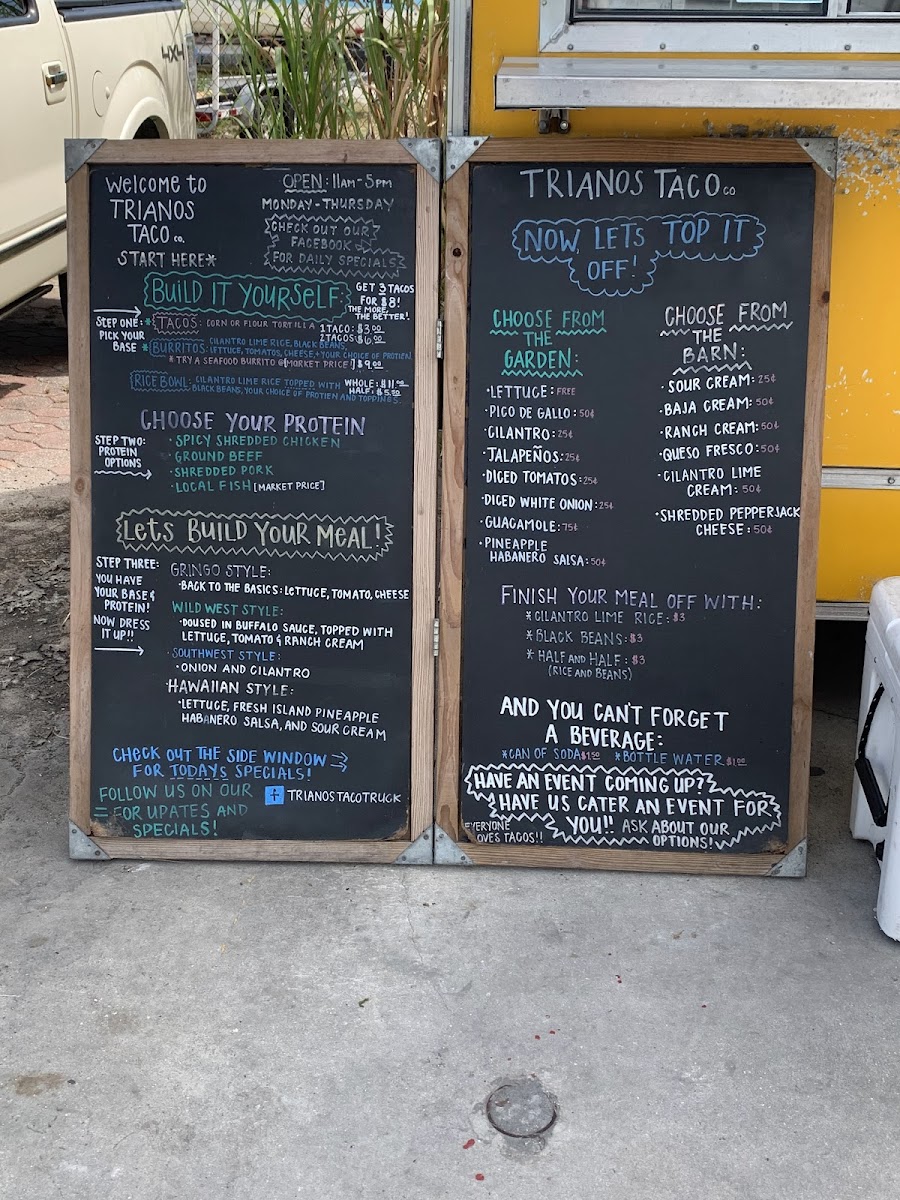 Welcome to
TRIANOS
TACO co.
START HERE*
OPEN: 11am-5pm
MONDAY-THURSDAY
CHECK OUT OUR
FACEBOOK
FOR DAILY SPECIALS
BUILD IT YOURSELF:
GET 3 TACOS
FOR $8!
THE MORE,
THE BETTER!
STEP ONE:
PICK YOUR
BASE
*TACOS: CORN OR FLOUR TORTILLA
1 TACO: $3.00
2 TACOS: $6.00
*BURRITOS: CILANTRO LIME RICE, BLACK BEANS,
LETTUCE, TOMATOS, CHEESE, + YOUR CHOICE OF PROTIEN
*TRY A SEAFOOD BURRITO @[MARKET PRICE!] $9.00
RICE BOWL: CILANTRO LIME RICE TOPPED WITH
BLACK BEANS, YOUR CHOICE OF PROTIEN AND TOPPINGS
WHOLE: $11.00
HALF: $5.00
CHOOSE YOUR PROTEIN
STEP TWO:
PROTEIN
OPTIONS
·SPICY SHREDDED CHICKEN
·GROUND BEEF
·SHREDDED PORK
·LOCAL FISH [MARKET PRICE]
LETS BUILD YOUR MEAL!
STEP THREE:
YOU HAVE
YOUR BASE &
PROTEIN!
NOW DRESS
IT UP!!
GRINGO STYLE:
·BACK TO THE BASICS: LETTUCE, TOMATO, CHEESE
WILD WEST STYLE:
·DOUSED IN BUFFALO SAUCE, TOPPED WITH
LETTUCE, TOMATO & RANCH CREAM
·SOUTHWEST STYLE:
·ONION AND CILANTRO
·HAWAIIAN STYLE:
·LETTUCE, FRESH ISLAND PINEAPPLE
HABANERO SALSA, AND SOUR CREAM
CHECK OUT THE SIDE WINDOW
FOR TODAYS SPECIALS!
FOLLOW US ON OUR
FOR UPATES AND
SPECIALS!
f TRIANOSTACOTRUCK
TRIANOS TACO CO
NOW, LETS TOP IT
OFF!
CHOOSE FROM
THE
GARDEN:
·LETTUCE: FREE
·PICO DE GALLO: 50¢
·CILANTRO: 25¢
·JALAPEÑOS: 25¢
·DICED TOMATOS: 25¢
·DICED WHITE ONION: 25¢
·GUACAMOLE: 75¢
·PINEAPPLE
HABANERO SALSA: 50¢
CHOOSE FROM
THE
BARN:
·SOUR CREAM: 25¢
·BAJA CREAM: 50¢
·RANCH CREAM: 50¢
·QUESO FRESCO: 50¢
·CILANTRO LIME
CREAM: 50¢
·SHREDDED PEPPERJACK
CHEESE: 50¢
FINISH YOUR MEAL OFF WITH:
*CILANTRO LIME RICE: $3
*BLACK BEANS: $3
*HALF AND HALF: $3
(RICE AND BEANS)
AND YOU CAN'T FORGET
A BEVERAGE:
*CAN OF SODA $1.50 *BOTTLE WATER $1.00
HAVE AN EVENT COMING UP?
HAVE US CATER AN EVENT FOR
YOU!! ASK ABOUT OUR
OPTIONS!
EVERYONE
LOVES TACOS!!
4X4